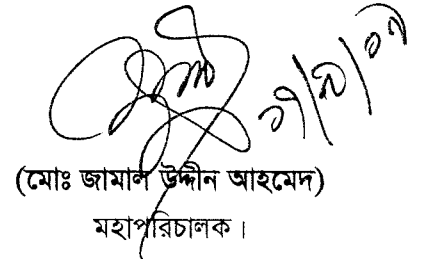 (মোঃ জামাল উদ্দীন আহমেদ)
মহাপরিচালক।